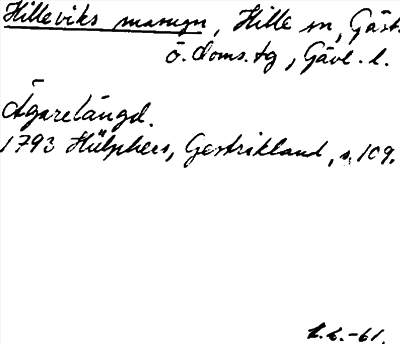 Hilleviks masugn, Hille sn, Gäst.
ö. doms. tg, Gävl. l.
Ägarelängd.
1793 Hülphers, Gestrikland, s. 109.
-61.